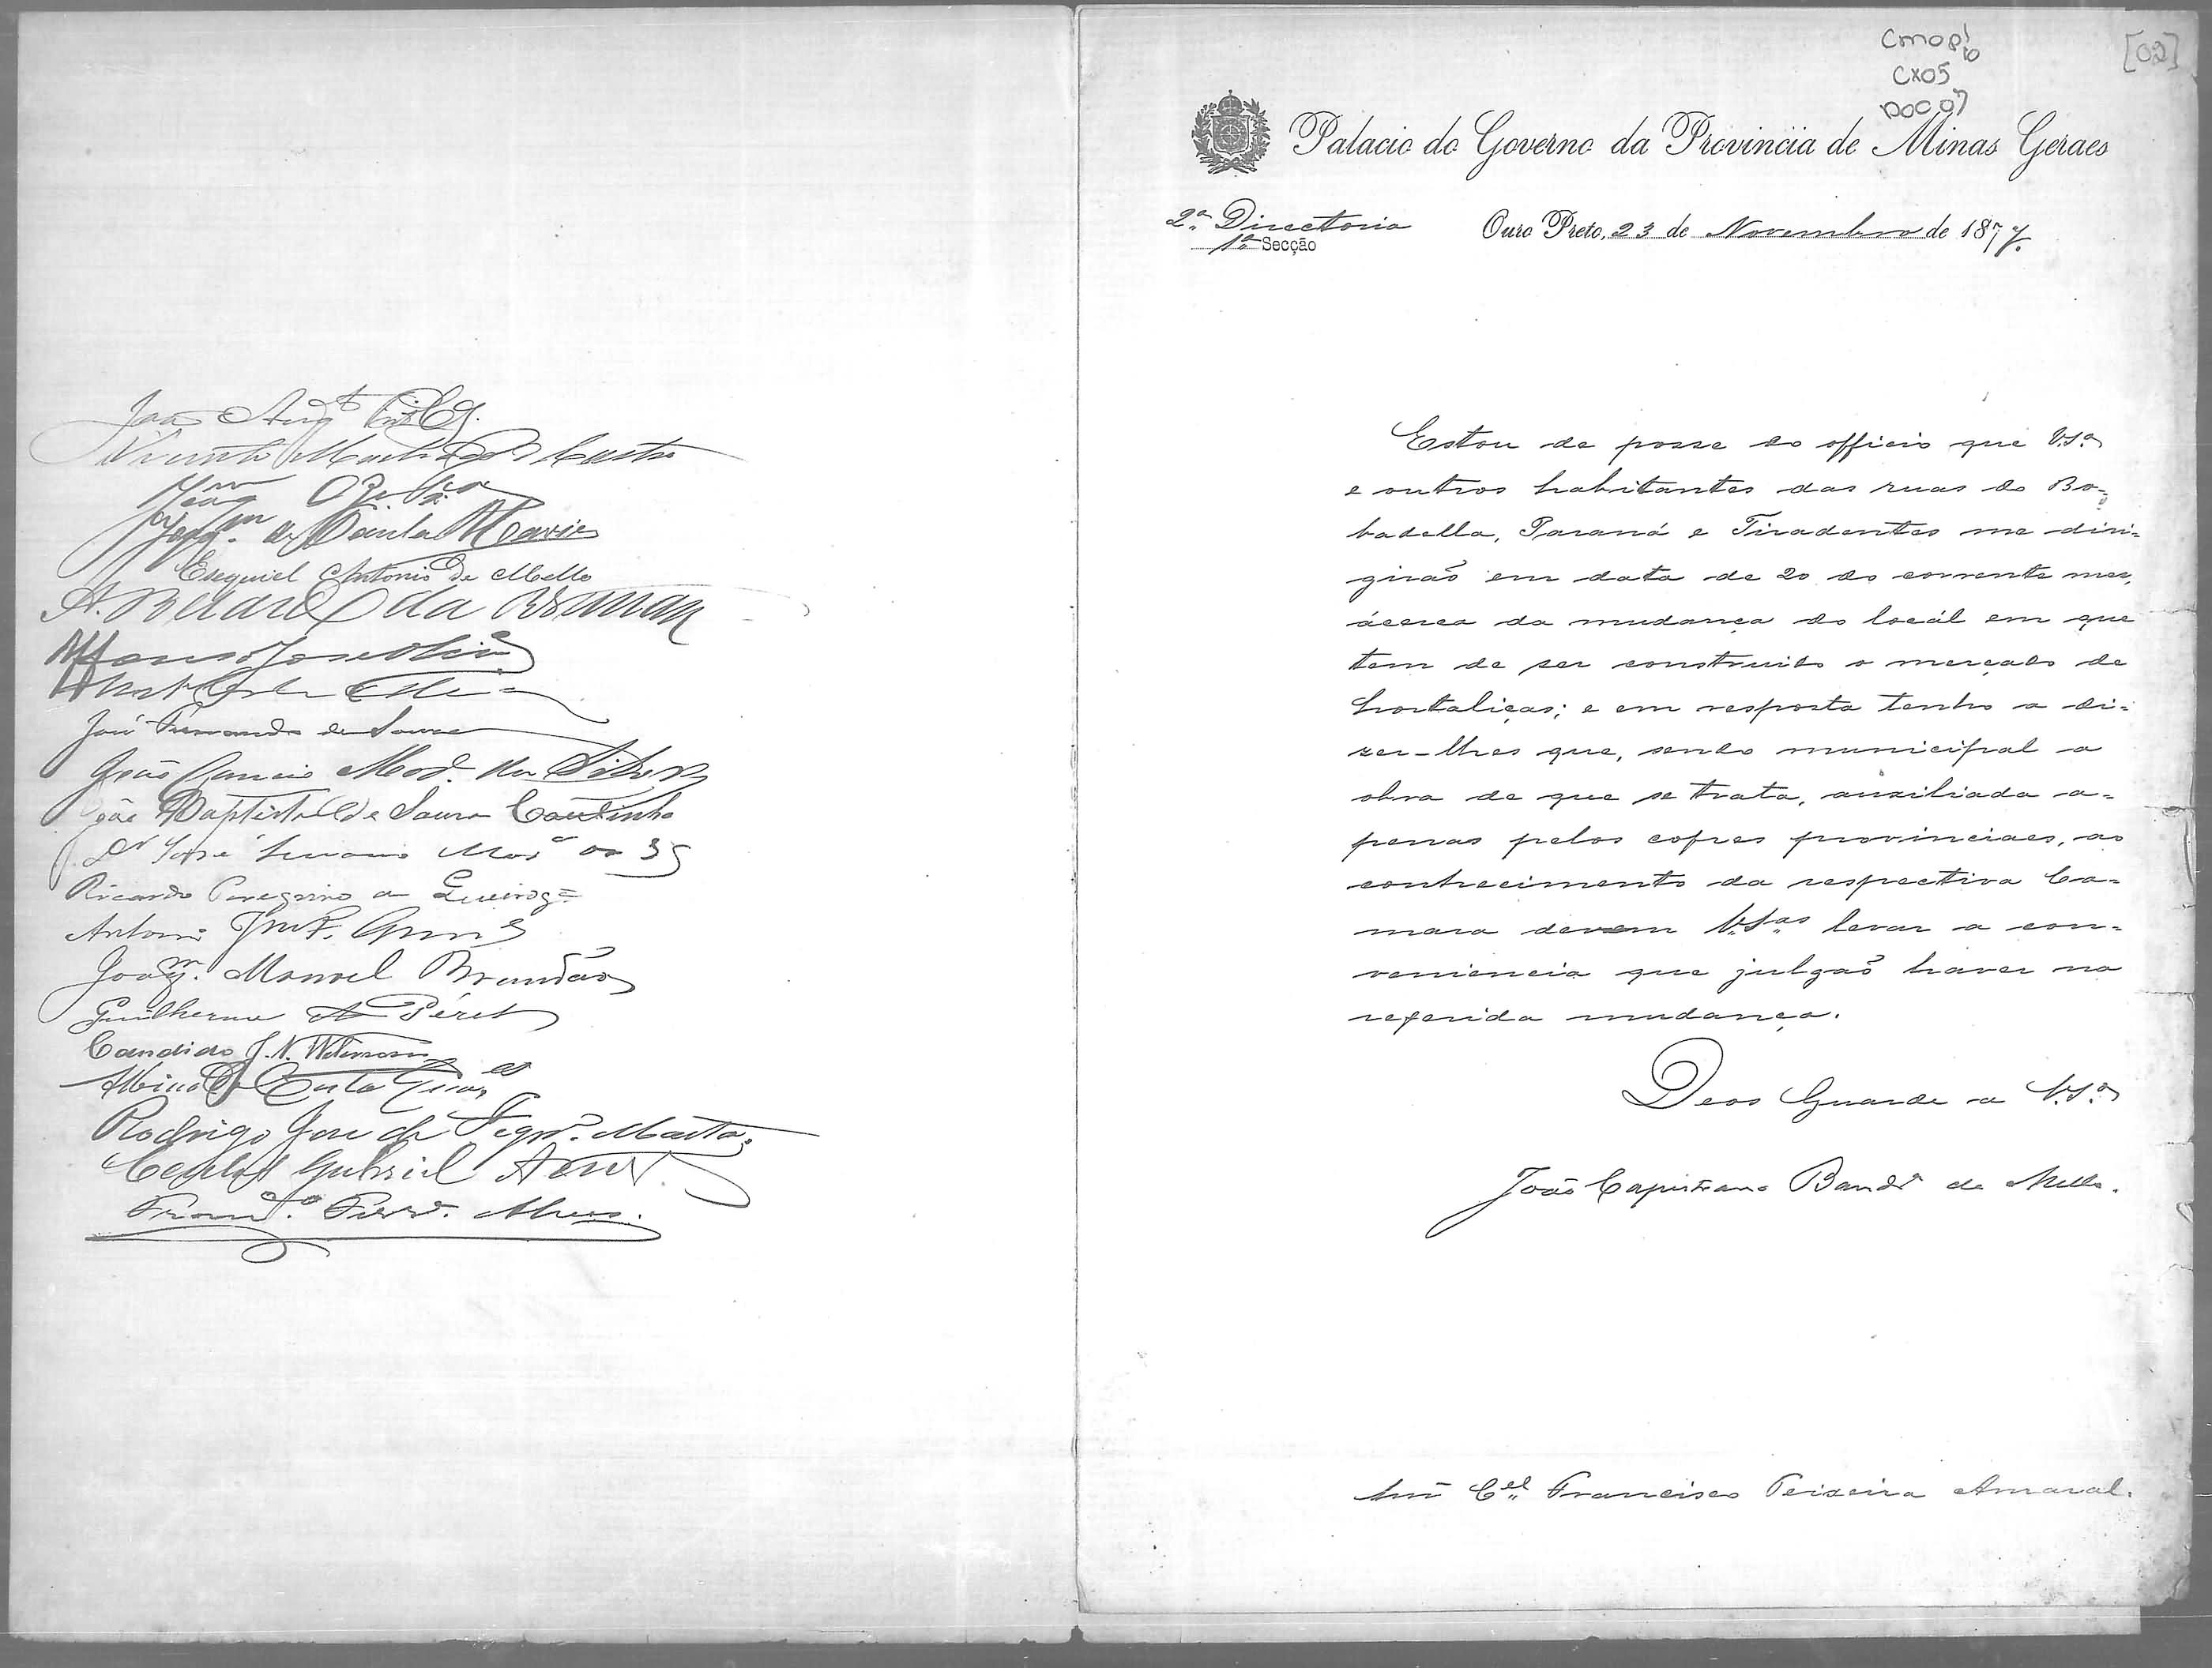 João Aug.to
Castro
Joaq.m de Paula
Ezequiel Antonio de Mello
da
Affonso José
José Fernando de Souza
João Cancio da Silva
João Baptista de Souza Coutinho
D.r José
Ricardo Peregrino de Queiroga
Antonio
Joaq.m Manoel Brandão
Guilherme A Péret
Candido J. N.
Albino da Costa
Rodrigo José de Motta
Carlos Gabriel
Fran.co Ferr.a Alves.
Cmop1
10
Cx05
Doc 07
[02]
Palacio do Governo da Provincia de Minas Geraes
2.a Directoria
1.a Secção
Ouro Preto, 23 de Novembro de 1877.
Estou de posse do officio que V.S.a
e outros habitantes das ruas do Bo-
badella, Paraná e Tiradentes me diri-
girão em data de 20 do corrente mez,
ácerca da mudança do locál em que
tem de ser construido o mercado de
hortaliças; e em resposta tenho a di-
zer-lhes que, sendo municipal a
obra de que se trata, auxiliada a-
penas pelos cofres provinciaes, ao
conhecimento da respectiva Ca-
mara devem V.S.as levar a con-
veniencia que julgão haver na
referida mudança.
Deos Guarde a V.S.a
João Capistrano Band.ra de Mello.
C.el Francisco Teixeira Amaral.